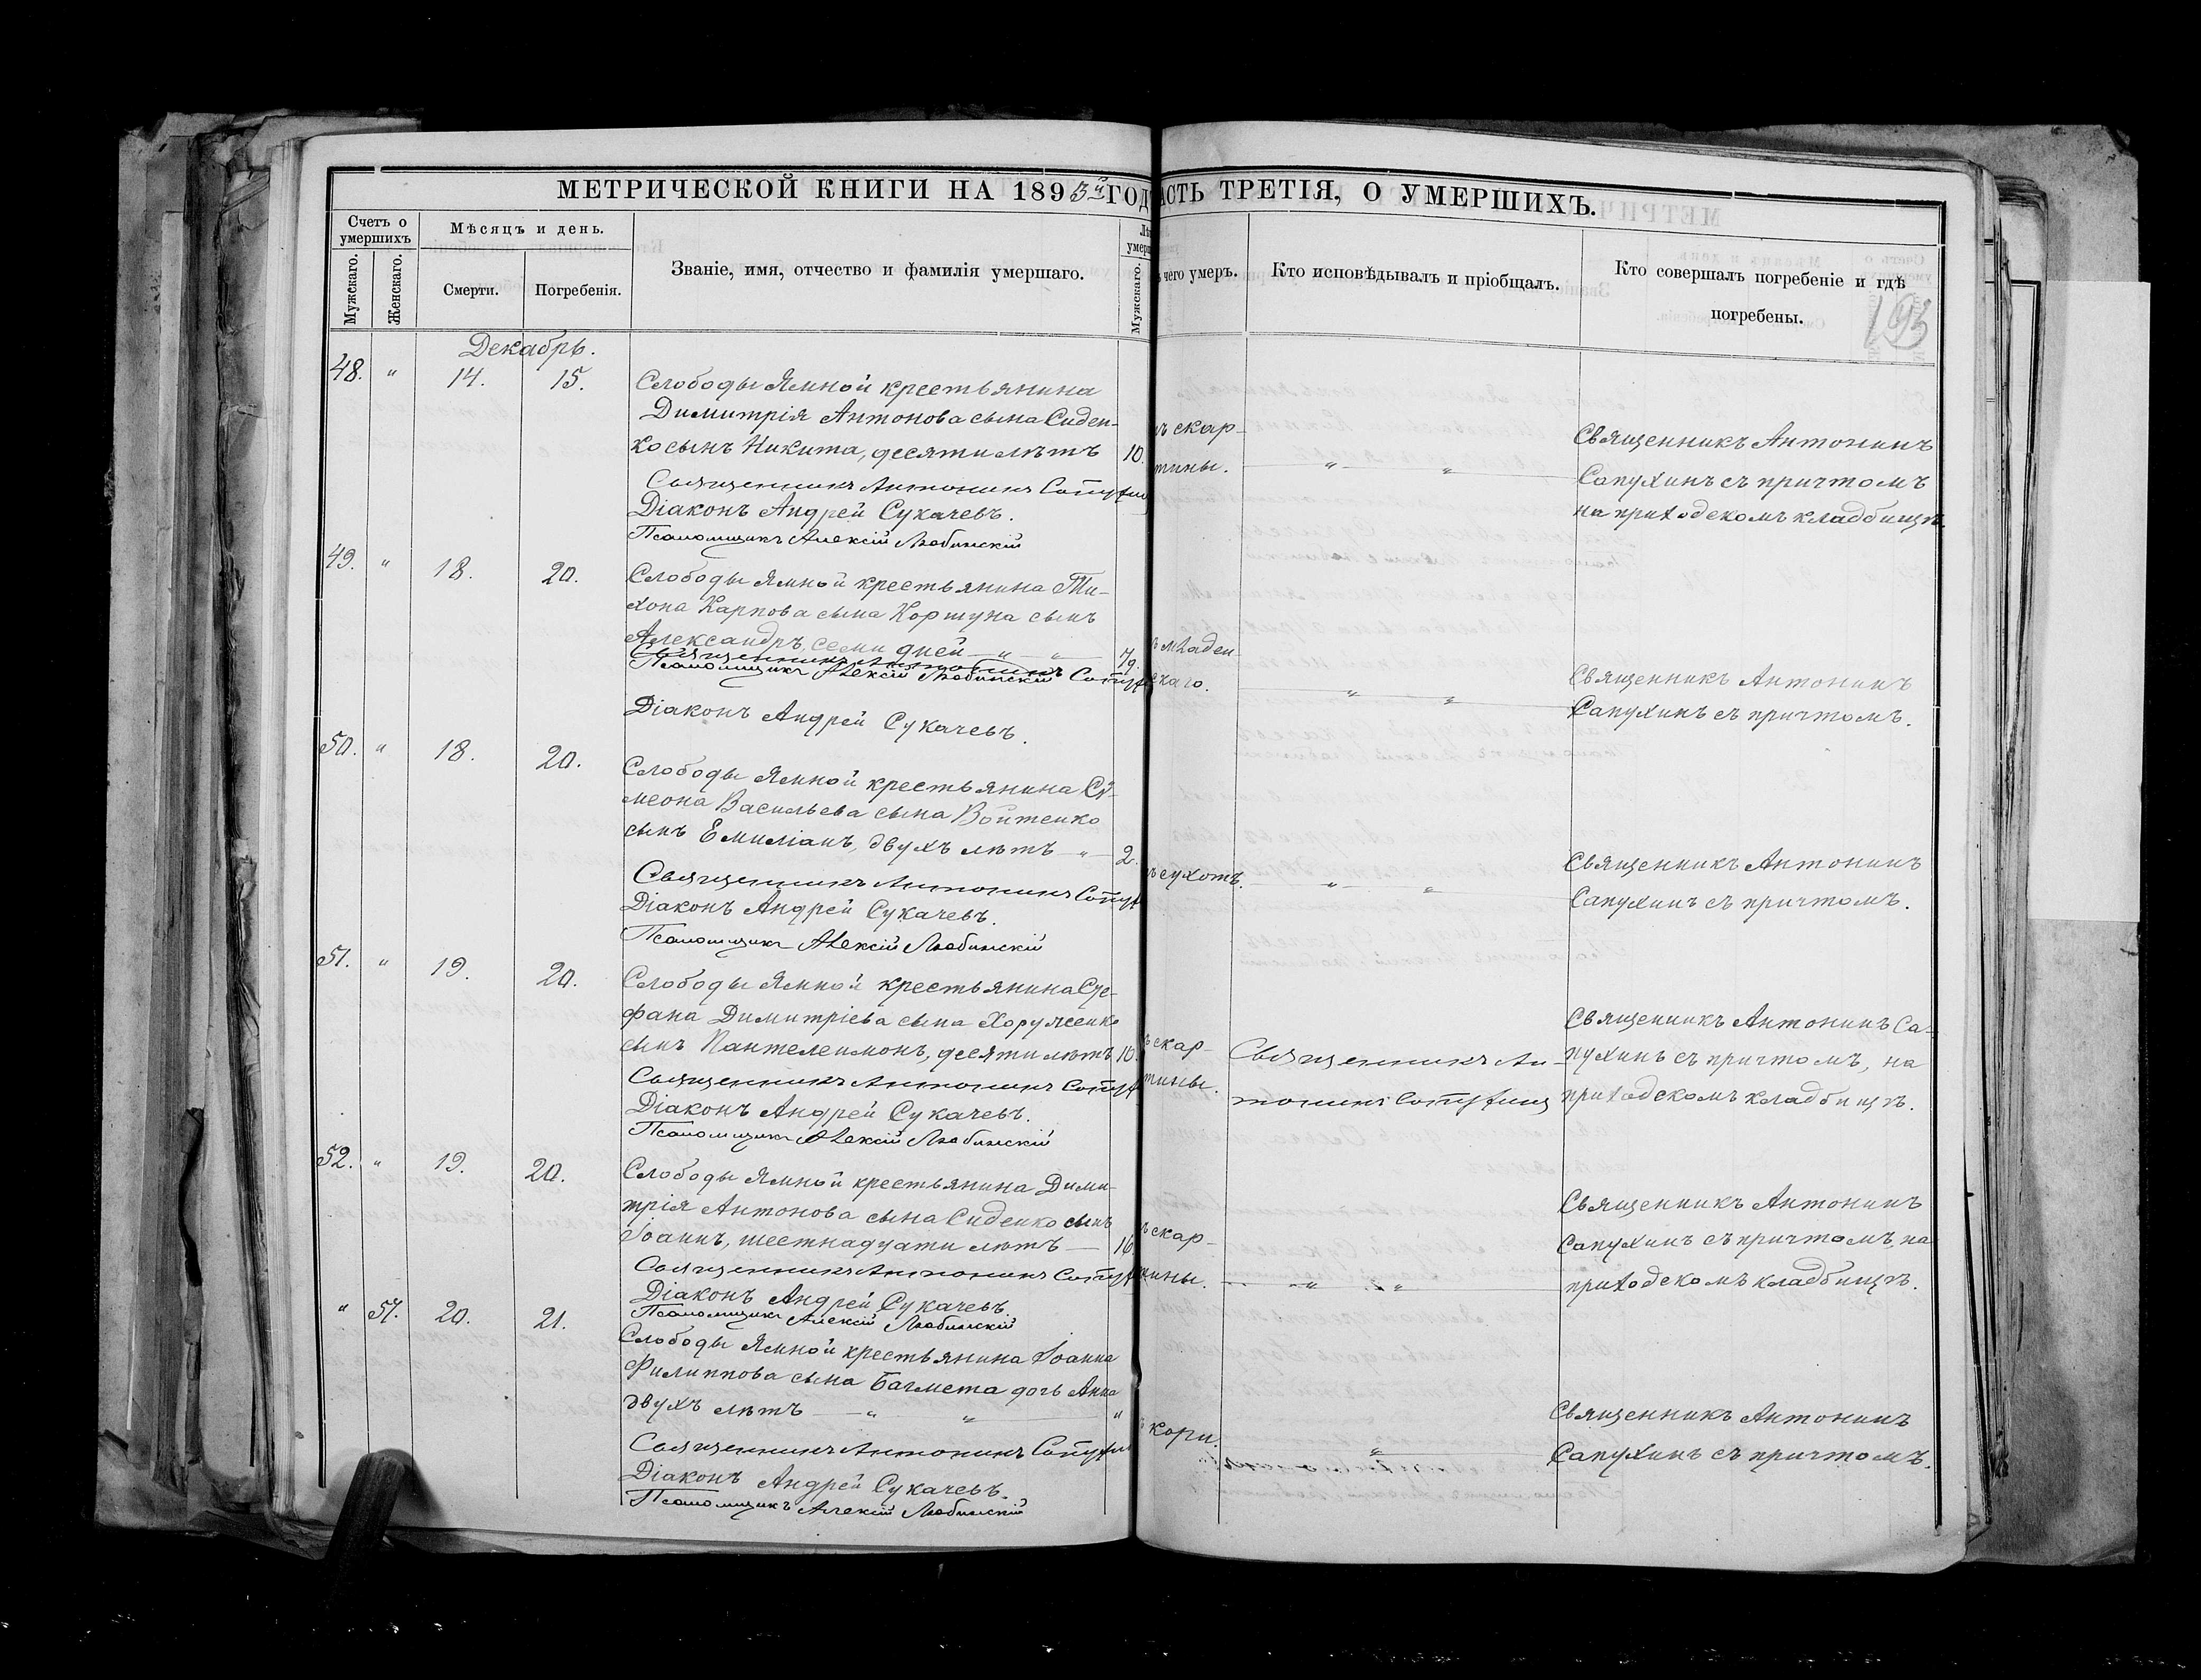 МЕТРИЧЕСКОЙ КНИГИ НА 1893й ГОД
АСТЬ ТРЕТІЯ, О УМЕРШИХЪ.
193
Счетъ о умершихъ
Мужскаго.
Женскаго.
Мѣсяцъ и день.
Смерти.
Погребенія.
Званіе, имя, отчество и фамилія умершаго.
Мужскаго.
чего умеръ.
Кто исповѣдывалъ и пріобщалъ.
Кто совершалъ погребеніе и гдѣ
погребены.
Декабрь.
48. " 14. 15.
Слободы Ямной крестьянина
Димитрія Антонова сына Сиден-
ко сынъ Никита, десяти лѣтъ 10.
Священникъ Антонинъ Сапухин
Діаконъ Андрей Сукачевъ.
Псаломщикъ Алексій Любинскій
скар-
тины.
" "
Священникъ Антонинъ
Сапухинъ съ причтомъ
на приходскомъ кладбищѣ.
49. " 18. 20.
Слободы Ямной крестьянина Ти-
хона Карпова сына Коршуна сынъ
Александръ, семи дней " " 7д.
Священникъ Антонинъ Сапух
Псаломщикъ Алексій Любинскій
Діаконъ Андрей Сукачевъ.
младен
скаго.
" "
Священникъ Антонинъ
Сапухинъ съ причтомъ.
50. " 18. 20.
Слободы Ямной крестьянина Сѵ-
меона Васильева сына Войтенко
сынъ Емиліанъ, двухъ лѣтъ " 2.
Священникъ Антонинъ Сапух
Діаконъ Андрей Сукачевъ.
Псаломщикъ Алексій Любинскій
сухотъ.
" "
Священникъ Антонинъ
Сапухинъ съ причтомъ.
51. " 19. 20.
Слободы Ямной крестьянина Сте-
фана Димитріева сына Хоруженко
сынъ Пантелеимонъ, десяти лѣтъ 10.
Священникъ Антонинъ Сапух
Діаконъ Андрей Сукачевъ.
Псаломщикъ Алексій Любинскій
скар-
тины.
Священникъ Ан-
тонинъ Сапухинъ
Священникъ Антонинъ Са-
пухинъ съ причтомъ, на
приходскомъ кладбищѣ.
52. " 19. 20.
Слободы Ямной крестьянина Дими-
трія Антонова сына Сиденко сынъ
Іоаннъ, шестнадцати лѣтъ 16
Священникъ Антонинъ Сапух
Діаконъ Андрей Сукачевъ.
Псаломщикъ Алексій Любинскій
скар-
тины.
" "
Священникъ Антонинъ
Сапухинъ съ причтомъ, на
приходскомъ кладбищѣ.
" 57. 20. 21.
Слободы Ямной крестьянина Іоанна
Филиппова сына Багмета дочь Анна
двухъ лѣтъ " " "
Священникъ Антонинъ Сапухин
Діаконъ Андрей Сукачевъ.
Псаломщикъ Алексій Любинскій
кори.
"
Священникъ Антонинъ
Сапухинъ съ причтомъ.